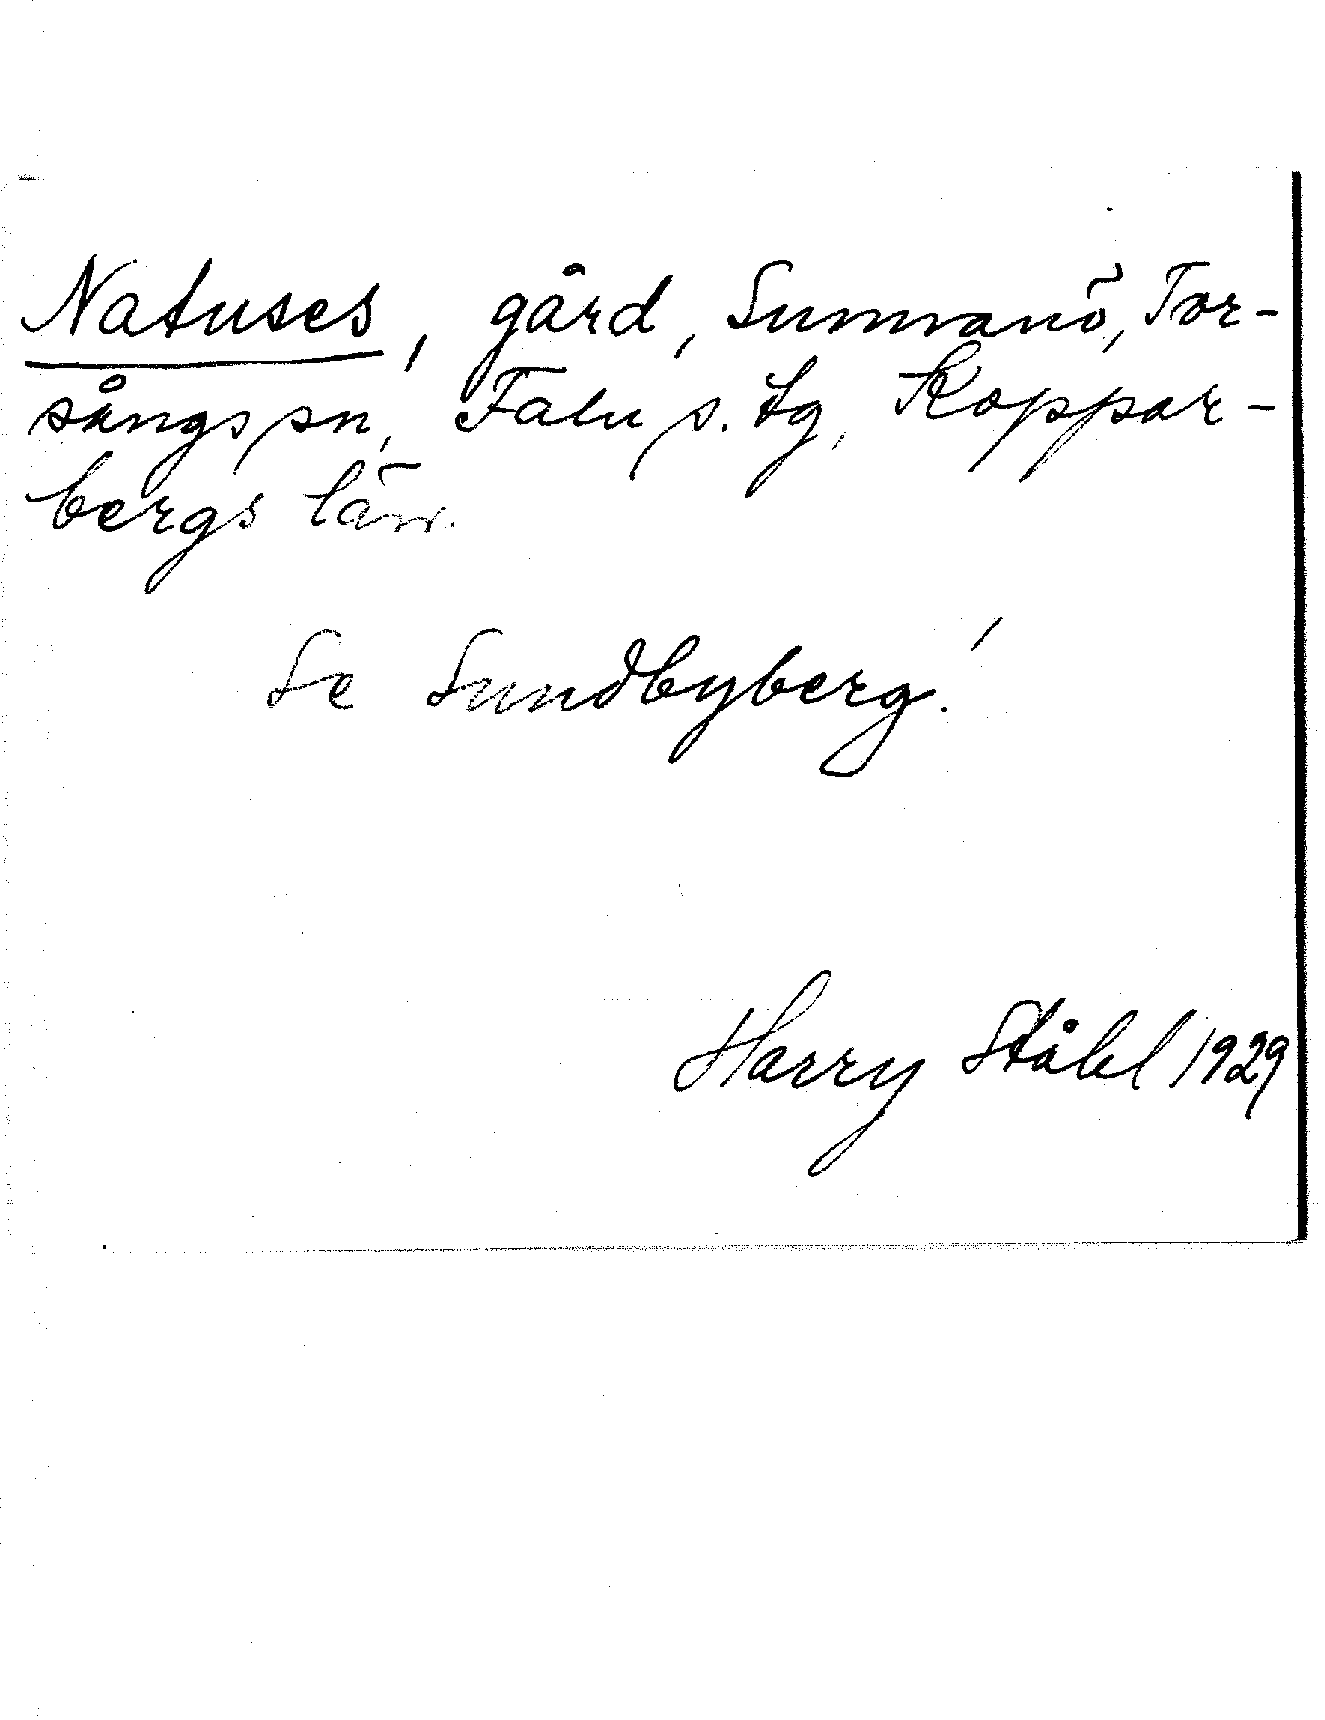 Natuses, gård, Sunnanö, Tor-
sångs sn, Falu s. tg, Koppar-
bergs län.
Se Sundbyberg!
Harry Ståhl 1929